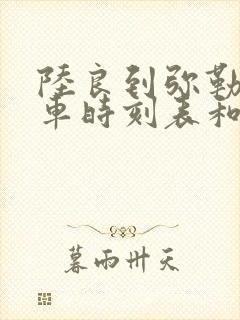 陸良到弥勒
車時刻表和
暮雨卅天